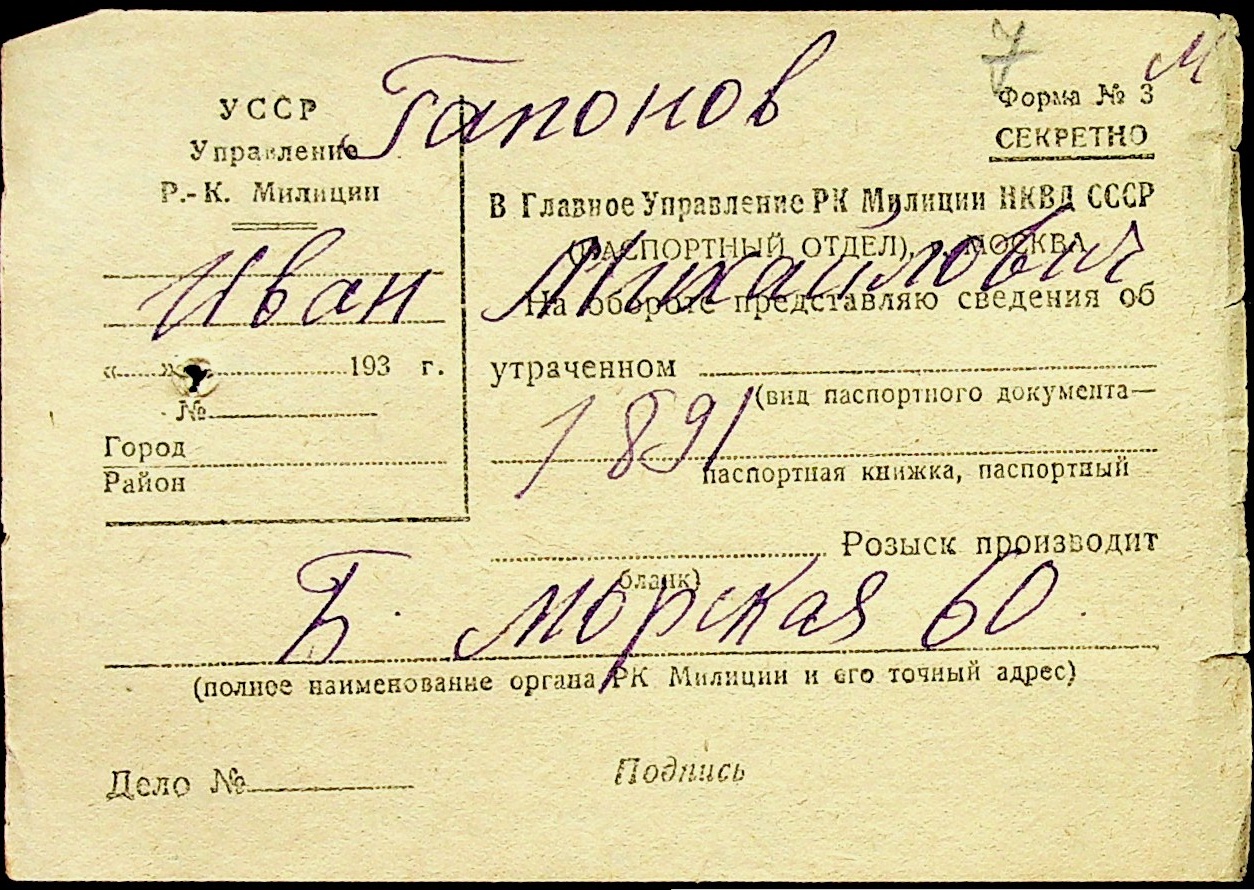 7 М
Гапонов
УССР
Управление
Р.-К. Милиции
Форма № 3
СЕКРЕТНО
В Главное Управление РК Милиции НКВД СССР
(ПАСПОРТНЫЙ ОТДЕЛ), г. МОСКВА
Иван Михайлович
На обороте представляю сведения об
«......»..................193 г.
№
утраченном
(вид паспортного документа—
1891
Город
Район
паспортная книжка, паспортный
Розыск производит
бланк)
Б. Морская 60.
(полное наименование органа РК Милиции и его точный адрес)
Дело №
Подпись